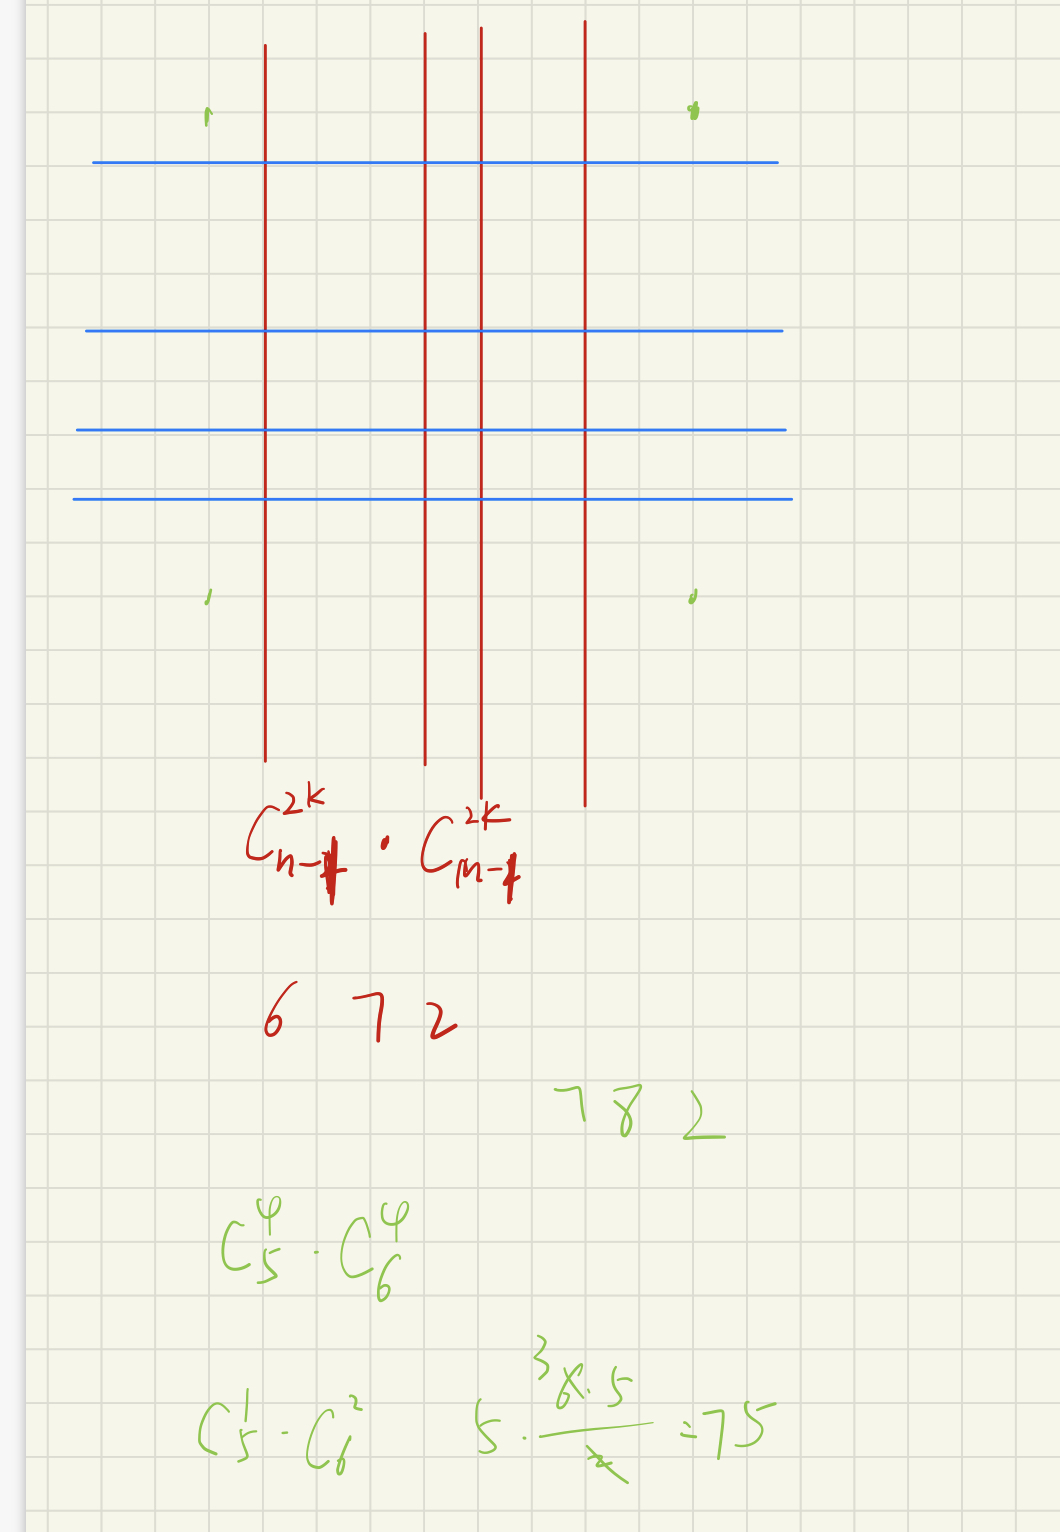 C_{n-1}^{2K} · C_{m-1}^{2K}
6 7 2
7 8 2
C_5^4 · C_6^4
C_5^1 - C_6^2 5 · \frac{\overset{3}{6} · 5}{2} = 75